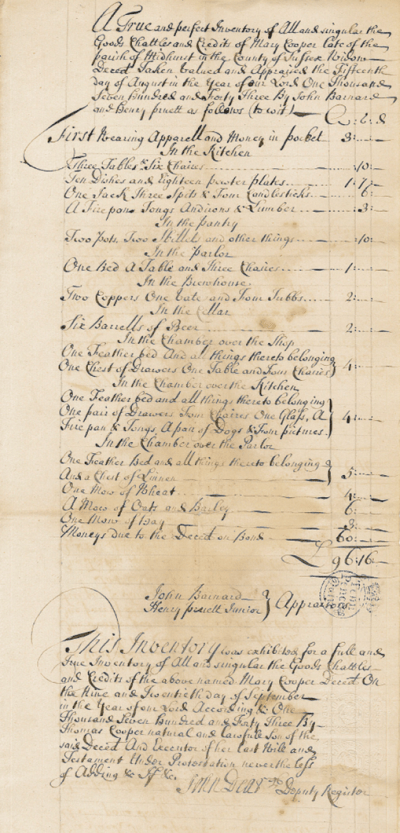 A True and perfect Inventory of All and singular the
Goods Chattles and Credits of Mary Cooper late of the
parish of Midhurst in the County of Sussex Widow
Deced Taken Valued and Appraised the Fifteenth
day of August in the Year of our Lord One Thousand
Seven Hundred and Forty Three By John Barnard
and Henry as follows (to wit)
First Wearing Apparell and Money in pocket 3:
In the Kitchen
Three Tables Six Chaires 10:
Ten Dishes and Eighteen pewter plates 1:7:
One Jack Three Spitts & Four Candlesticks 6:
A Fire pan Tongs Andirons & Lumber 3:
In the pantry
Two pots Two Skillets and other things 10:
In the Parlor
One Bed A Table and Three Chaires 1:
In the Brewhouse
Two Coppers One and Four Tubbs 2:
In the Cellar
Six Barrells of Beer 2:
In the Chamber over the Shop
One Feather bed And all things thereto belonging
One Chest of Drawers One Table and Four Chaires } 4:
In the Chamber over the Kitchen
One Feather bed and all things thereto belonging
One pair of Drawers Four Chaires One Glass, A
Fire pan & Tongs A pair of Dogs & Four pictures } 4:
In the Chamber over the Parlor
One Feather Bed and all things thereto belonging
And a Chest of Linnen } 5:
One Mow of Wheat 4:
A Mow of Oats and Barley 6:
One Mow of Hay 3:
Moneys due to the Deced on Bond 60:
£96:16
John Barnard
Henry Junior } Appraisors
This Inventory was exhibited for a full and
true Inventory of All and singular the Goods Chattles
and Credits of the above named Mary Cooper Deced On
the Nine and Twentieth day of September
in the Year of our Lord According &c One
Thousand Seven Hundred and Forty Three By
Thomas Cooper natural and lawfull Son of the
said Deced And Executor of her last Will and
Testament Under Protestation nevertheless
of Adding &c If &c
John Deputy Register